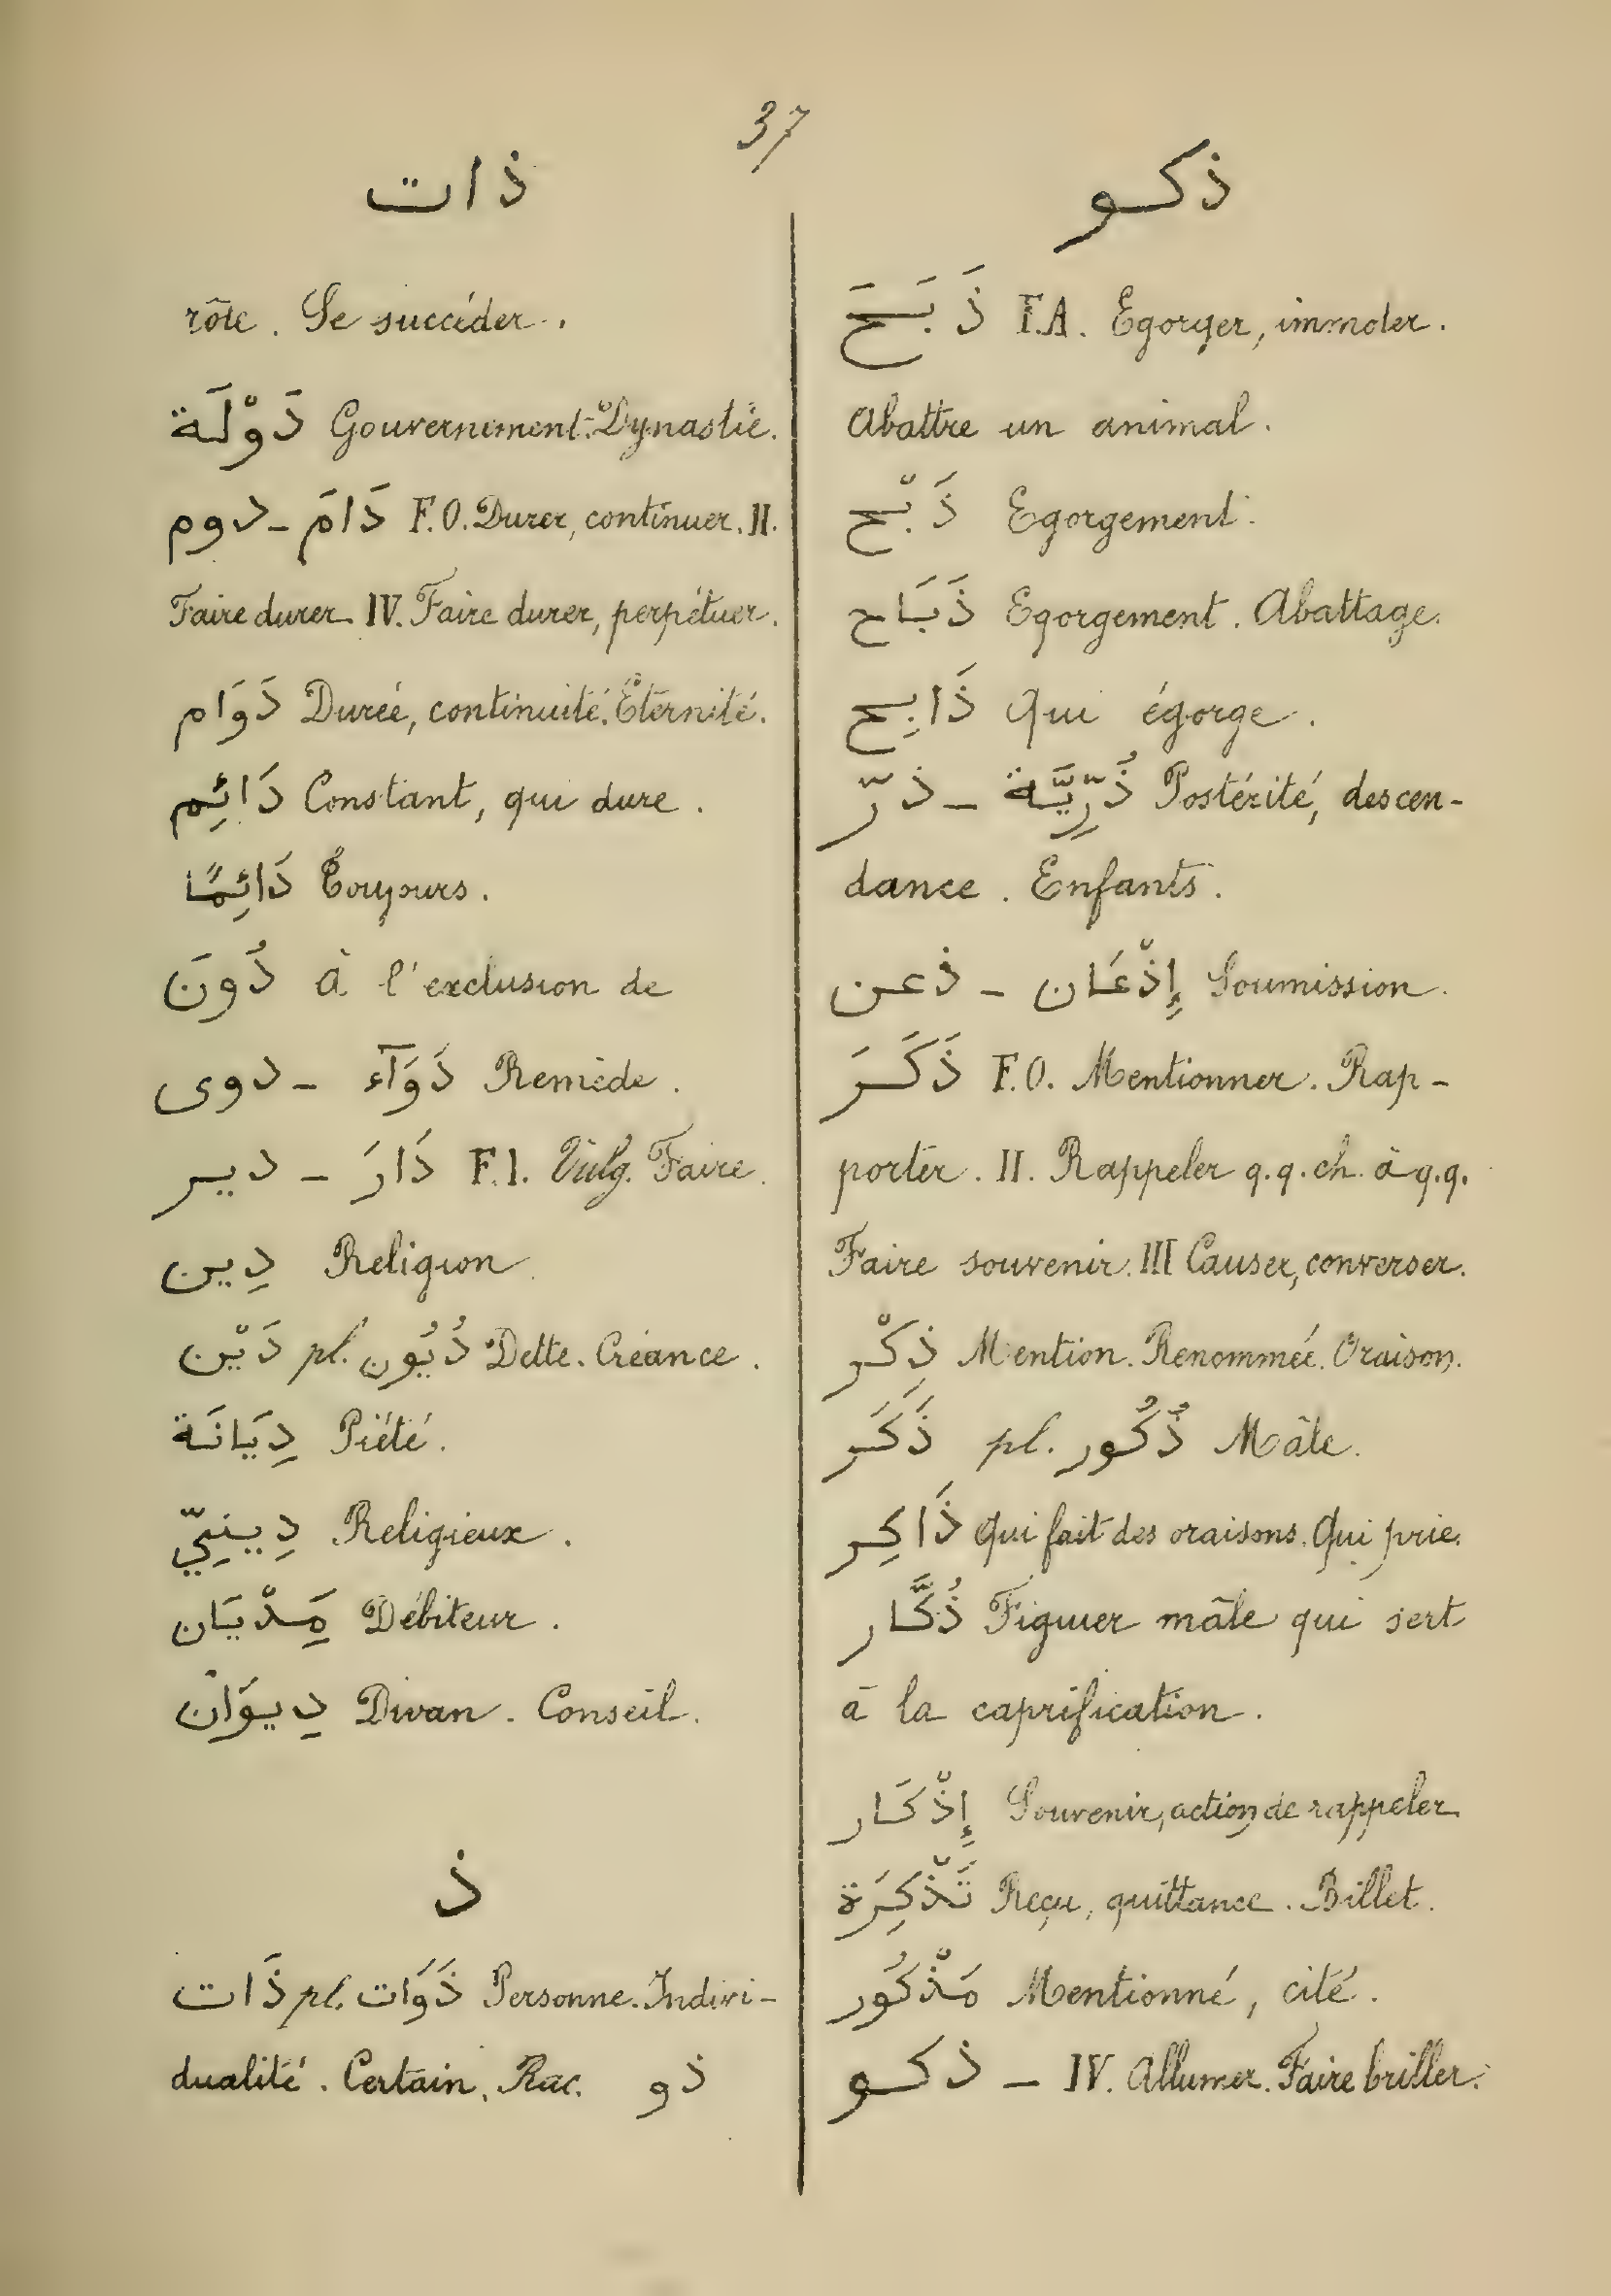 37
ذات
rôle. Se succéder.
دَوْلَة Gouvernement. Dynastie.
دوم - دَامَ F.O. Durer, continuer. II.
Faire durer. IV. Faire durer, perpétuer.
دَوَام Durée, continuité. Éternité.
دَائِم Constant, qui dure.
دَائِمًا Toujours.
دُونَ À l'exclusion de
دوى - دَوَآء Remède.
دير - دَارَ F.I. Vulg. Faire.
دِين Religion.
دَيْن pl. دُيُون Dette. Créance.
دِيَانَة Piété.
دِينِيّ Religieux.
مِدْيَان Débiteur.
دِيوَان Divan. Conseil.
ذ
ذَات pl. ذَوَات Personne. Indivi-
dualité. Certain. Rac. ذو
ذكو
ذَبَحَ F.A. Egorger, immoler.
Abattre un animal.
ذَبْح Egorgement.
ذَبَاح Egorgement. Abattage.
ذَابِح Qui égorge.
ذرّ - ذُرِّيَّة Postérité, descen-
dance. Enfants.
ذعن - إِذْعَان Soumission.
ذَكَرَ F.O. Mentionner. Rap-
porter. II. Rappeler q.q.ch. à q.q.
Faire souvenir. III Causer, converser.
ذِكْر Mention. Renommée. Oraison.
ذَكَر pl. ذُكُور Mâle.
ذَاكِر Qui fait des oraisons. Qui prie.
ذُكَّار Figuier mâle qui sert
à la caprification.
إِذْكَار Souvenir, action de rappeler.
تَذْكِرَة Reçu, quittance. Billet.
مَذْكُور Mentionné, cité.
ذكو - IV. Allumer. Faire briller.